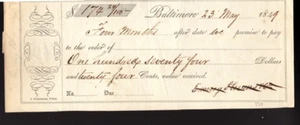 $ 174 24/100 Baltimore 23 May 1849
Four Months after date we promise to pay
to the order of
One hundred seventy four Dollars
and twenty four Cents, value received.
No. Due